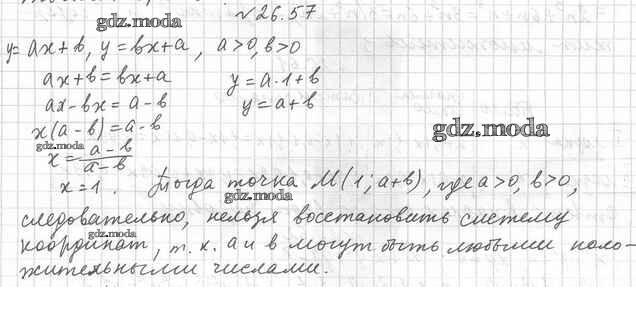 №26.57
gdz.moda
y = ax+b, y = bx+a, a>0, b>0
ax+b = bx+a y = a·1+b
ax-bx = a-b y = a+b
x(a-b) = a-b
gdz.moda
gdz.moda
x = a-b / a-b
x = 1. Тогда точка M(1; a+b), где a>0, b>0,
gdz.moda
следовательно, нельзя восстановить систему
gdz.moda
координат, т. к. a и b могут быть любыми поло-
жительными числами.